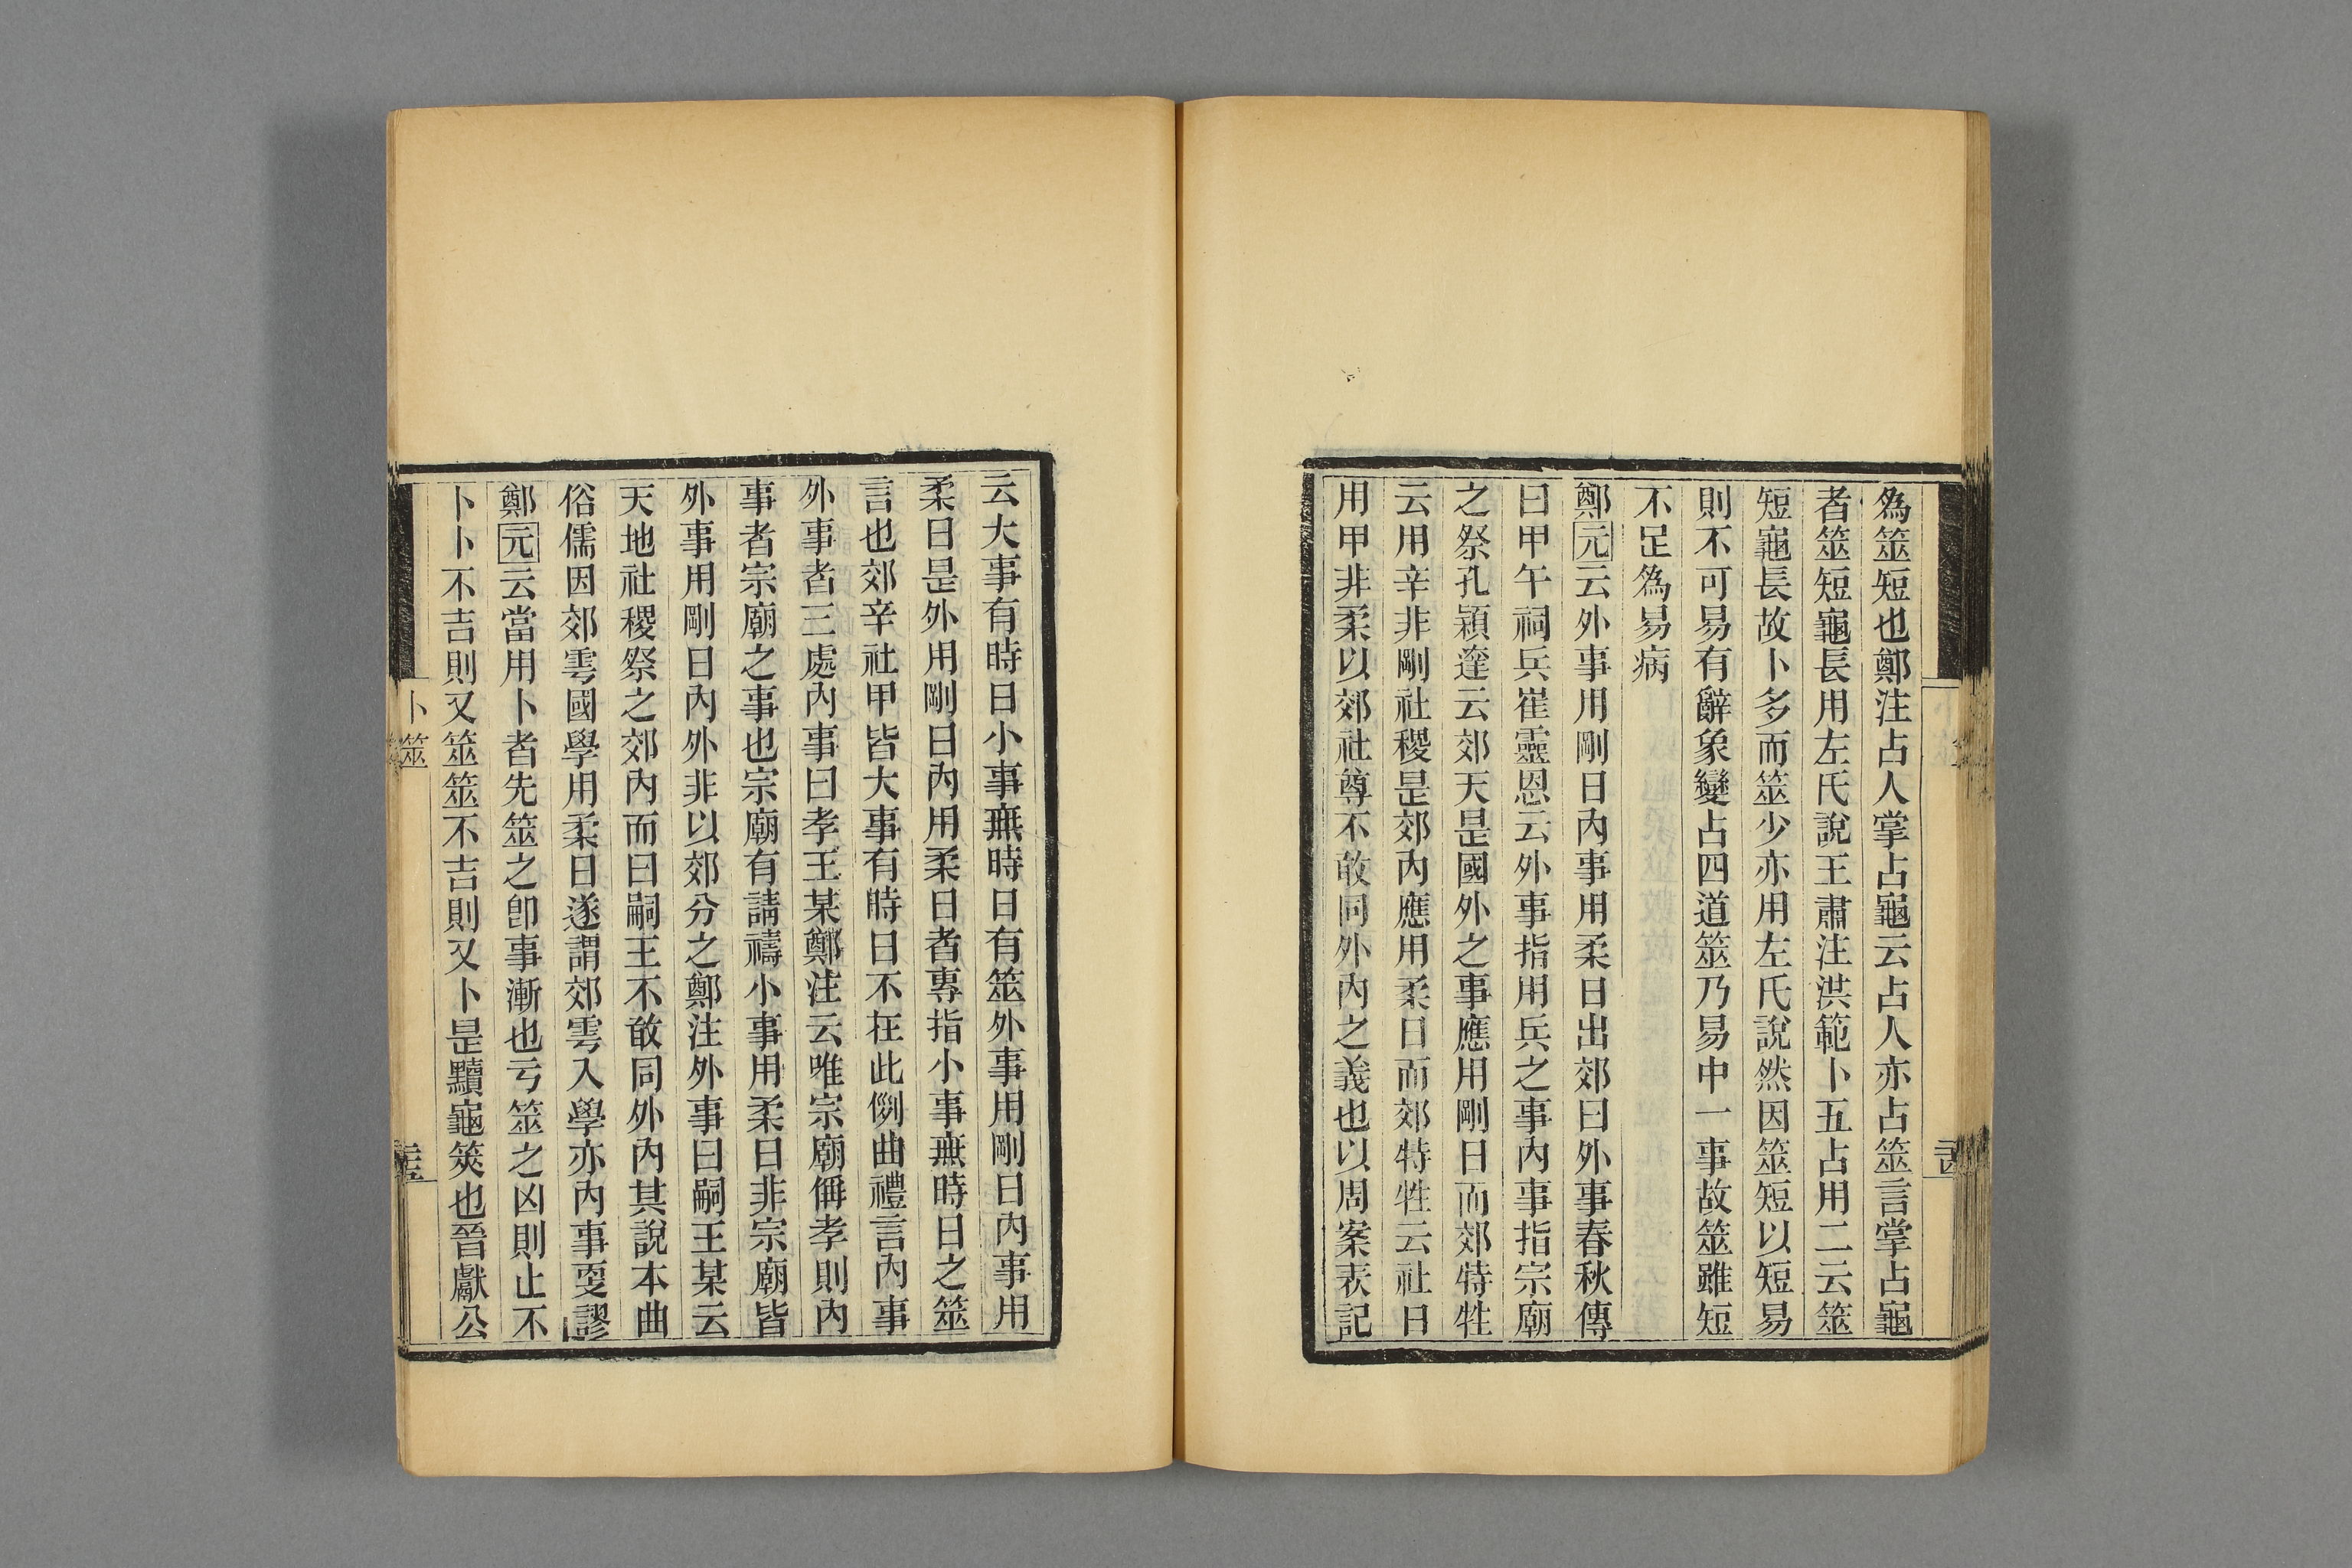 為筮短也鄭注占人掌占龜云占人亦占筮言掌占龜
者筮短龜長用左氏說王肅注洪範卜五占用二云筮
短龜長故卜多而筮少亦用左氏說然因筮短以短易
則不可易有辭象變占四道筮乃易中一事故筮雖短
不足為易病
鄭元云外事用剛日內事用柔日出郊曰外事春秋傳
曰甲午祠兵崔靈恩云外事指用兵之事內事指宗廟
之祭孔穎達云郊天是國外之事應用剛日而郊特牲
云用辛非剛社稷是郊內應用柔日而郊特牲云社日
用甲非柔以郊社尊不敢同外內之義也以周案表記
云大事有時日小事無時日有筮外事用剛日內事用
柔日是外用剛日內用柔日者專指小事無時日之筮
言也郊辛社甲皆大事有時日不在此例曲禮言內事
外事者三處內事曰孝王某鄭注云唯宗廟稱孝則內
事者宗廟之事也宗廟有請禱小事用柔日非宗廟皆
外事用剛日內外非以郊分之鄭注外事曰嗣王某云
天地社稷祭之郊內而曰嗣王不敢同外內其說本曲
俗儒因郊雩國學用柔日遂謂郊雩入學亦內事耎謬
鄭元云當用卜者先筮之卽事漸也亏筮之凶則止不
卜卜不吉則又筮筮不吉則又卜是黷龜筴也晉獻公
卜筮